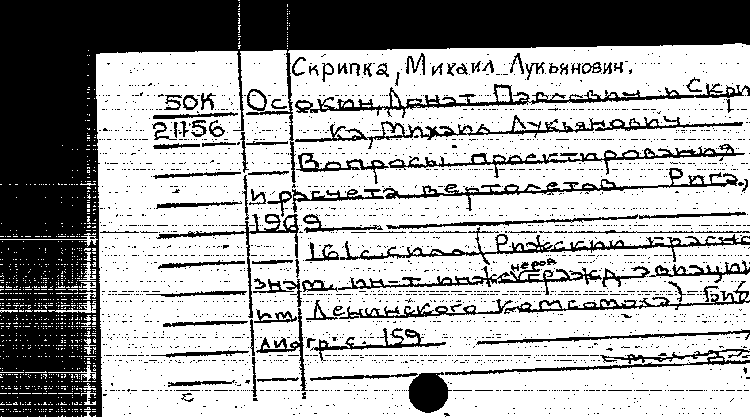 Скрипка, Михаил Лукьянович.
50К Осокин, Донат Павлович и Скрип
21156 ка, Михаил Лукьянович
Вопросы проектирования
и расчета вертолетов. Рига,
1969
161 с. с илл. (Рижский красно
знам. ин-т инженеров гражд. авиации
им. Ленинского Комсомола) Биб
лиогр: с. 159